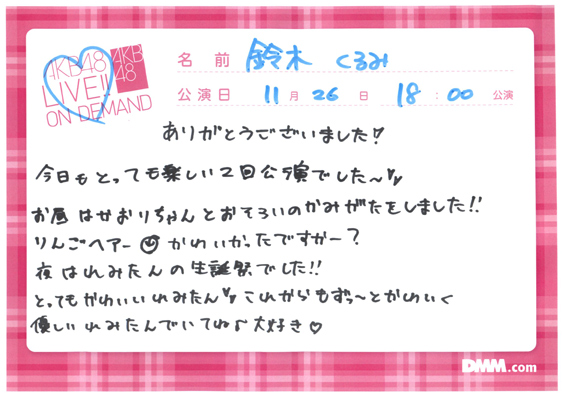 AKB48
LIVE!!
ON DEMAND
AKB
48
名前 鈴木 くるみ
公演日 11月26日 18:00公演
ありがとうございました!
今日もとっても楽しい2回公演でした〜
お昼はかおりちゃんとおそろいのかみがたをしました!!
りんごヘアー かわいかったですかー?
夜はれみたんの生誕祭でした!!
とってもかわいいれみたん これからもずっ〜とかわいく
優しいれみたんでいてね♪大好き♡
DMM.com